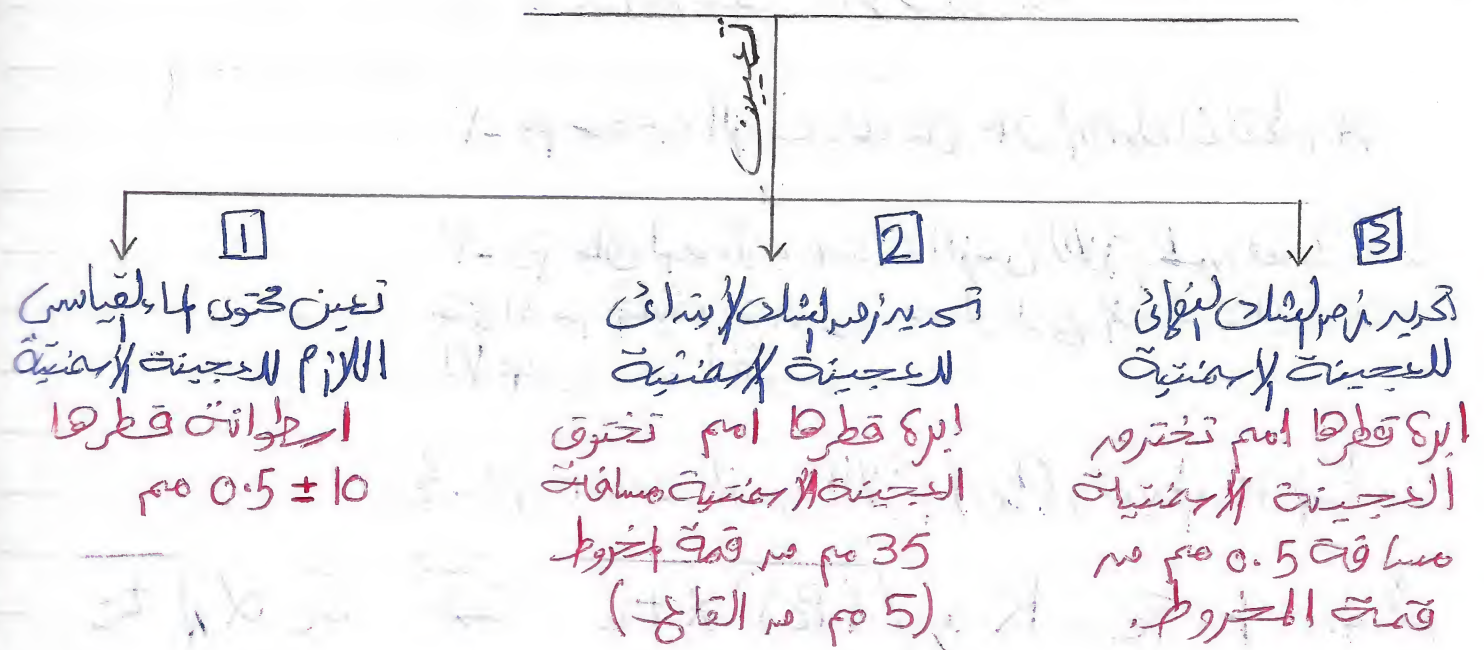 تعيين
1
تعين محتوى الماء القياسى
اللازم للعجينة الاسمنتية
اسطوانة قطرها
10 ± 0.5 مم
2
تحديد زمن الشك الابتدائى
للعجينة الاسمنتية
ابرة قطرها 1مم تخترق
العجينة الاسمنتية مسافة
35 مم من قمة المخروط
(5 مم من القاع)
3
تحديد زمن الشك النهائى
للعجينة الاسمنتية
ابرة قطرها 1مم تخترق
العجينة الاسمنتية
مسافة 0.5 مم من
قمة المخروط.